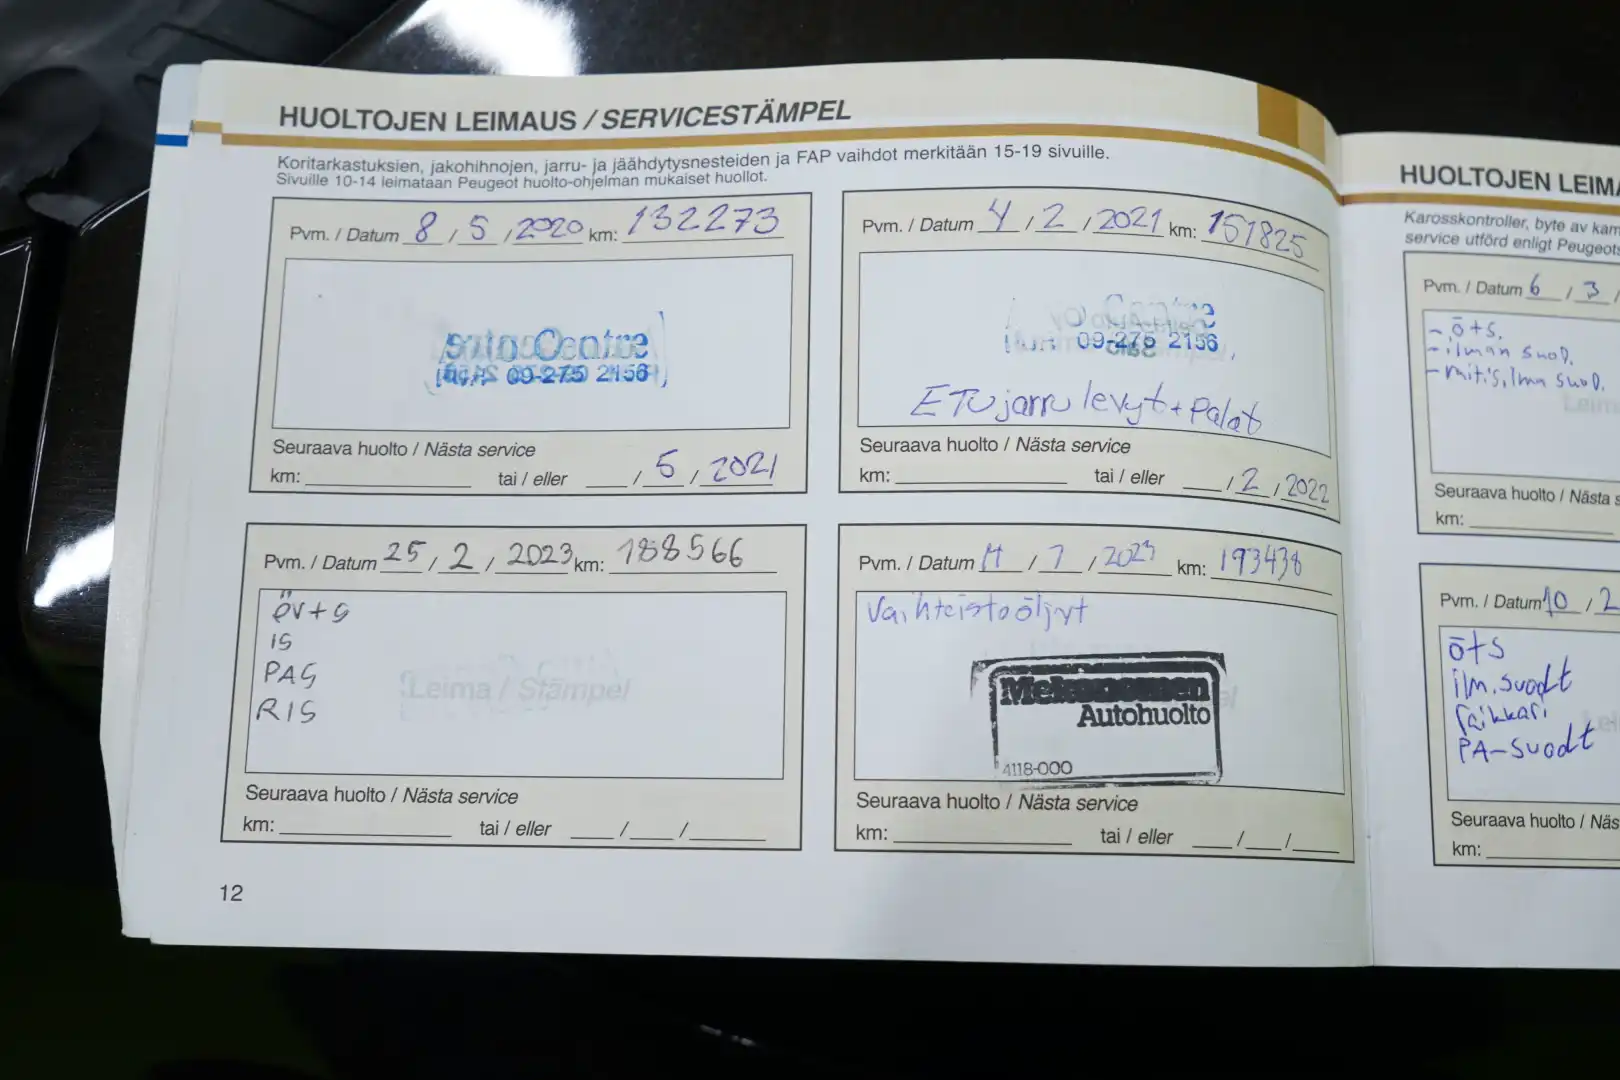 HUOLTOJEN LEIMAUS / SERVICESTÄMPEL
Koritarkastuksien, jakohihnojen, jarru- ja jäähdytysnesteiden ja FAP vaihdot merkitään 15-19 sivuille.
Sivuille 10-14 leimataan Peugeot huolto-ohjelman mukaiset huollot.
Pvm. / Datum 8 / 5 / 2020 km: 132273
Centre
09-275 2156
Seuraava huolto / Nästa service
km: tai / eller / 5 / 2021
Pvm. / Datum 4 / 2 / 2021 km: 151825
Centre
09-275 2156
ETUjarru levyt + Palat
Seuraava huolto / Nästa service
km: tai / eller / 2 / 2022
Pvm. / Datum 25 / 2 / 2023 km: 188566
öv+s
IS
PAS
RIS
Leima / Stämpel
Seuraava huolto / Nästa service
km: tai / eller / /
Pvm. / Datum / 7 / 2023 km: 193438
Vaihteistoöljyt
Mekonomen
Autohuolto
4118-000
Seuraava huolto / Nästa service
km: tai / eller / /
12
HUOLTOJEN LEIMA
Karosskontroller, byte av kam
service utförd enligt Peugeots
Pvm. / Datum 6 / 3 /
- ö+s.
- ilman suod.
- raitisilma suod.
Leim
Seuraava huolto / Nästa s
km:
Pvm. / Datum 10 / 2
ö+s
ilm.suodt
PA-suodt
Seuraava huolto / Näs
km: